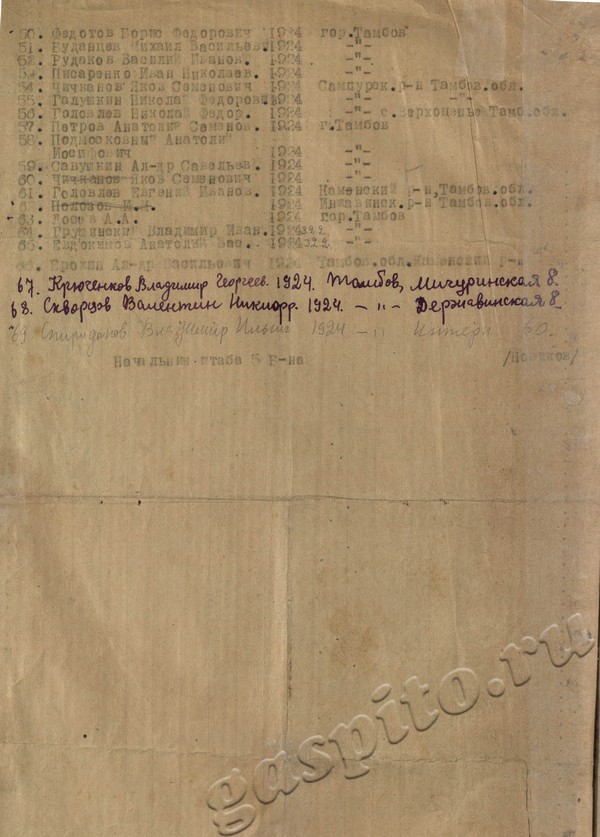 50. Федотов Борис Федорович 1924 гор.Тамбов
51. Вуданцев Михаил Васильев. 1924 -"-
52. Рудаков Василий Иванов. 1924 -"-
53. Писаренко Иван Николаев. 1924 -"-
54. Чичканов Яков Семенович 1924 Сампурск.р-н Тамбов.обл.
55. Галушкин Николай Федорович 1924 -"- -"-
56. Головлев Николай Федор. 1924 -"- с.Верхоценье Тамб.обл.
57. Петров Анатолий Семенов. 1924 г.Тамбов
58. Подмосковный Анатолий
Иосифович 1924 -"-
59. Савушкин Ал-др Савельев. 1924 -"-
60. Чичканов Яков Семенович 1924 -"-
61. Головлев Евгений Иванов. 1924 Каменский р-н,Тамбов.обл.
Полозов И.И. 1924 Инжавинск.р-н Тамбов.обл.
63. А.А. 1924 гор.Тамбов
64. Грушинский Владимир Иван. 1924 -"-
65. Евдокимов Анатолий Вас. 1924 -"-
66. Ерохин Ал-др Васильевич 1924 Тамбов.обл.Каменский р-н
67. Крюченков Владимир Георгеев. 1924. Тамбов, Мичуринская 8.
68. Скворцов Валентин Никифор. 1924. - " - Державинская 8.
69 Спиридонов Владимир Ильич 1924 - " Интер 60.
Начальник штаба 5 Б-на /Новиков/
gaspito.ru